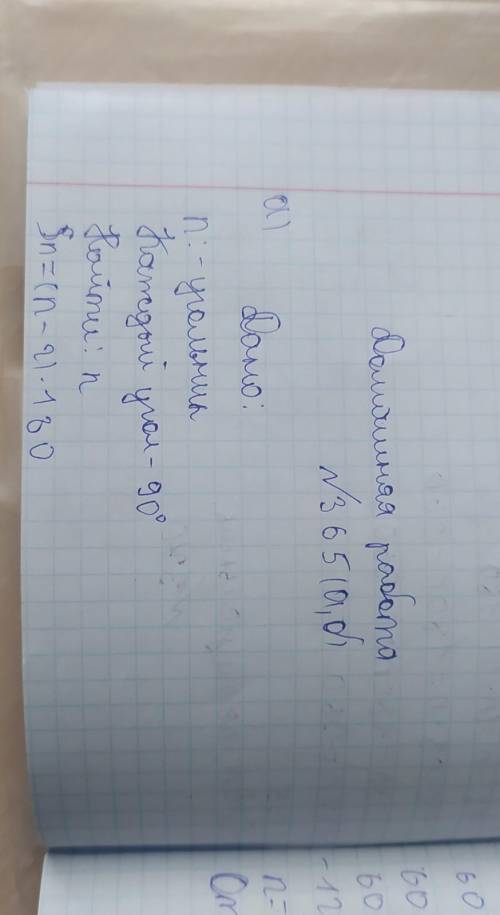 Домашняя работа
№365(а,б)
а) Дано:
n:-угольник
Каждый угол - 90°
Найти: n
Sn=(n-2)·180
60
60
60
-12
n=
От